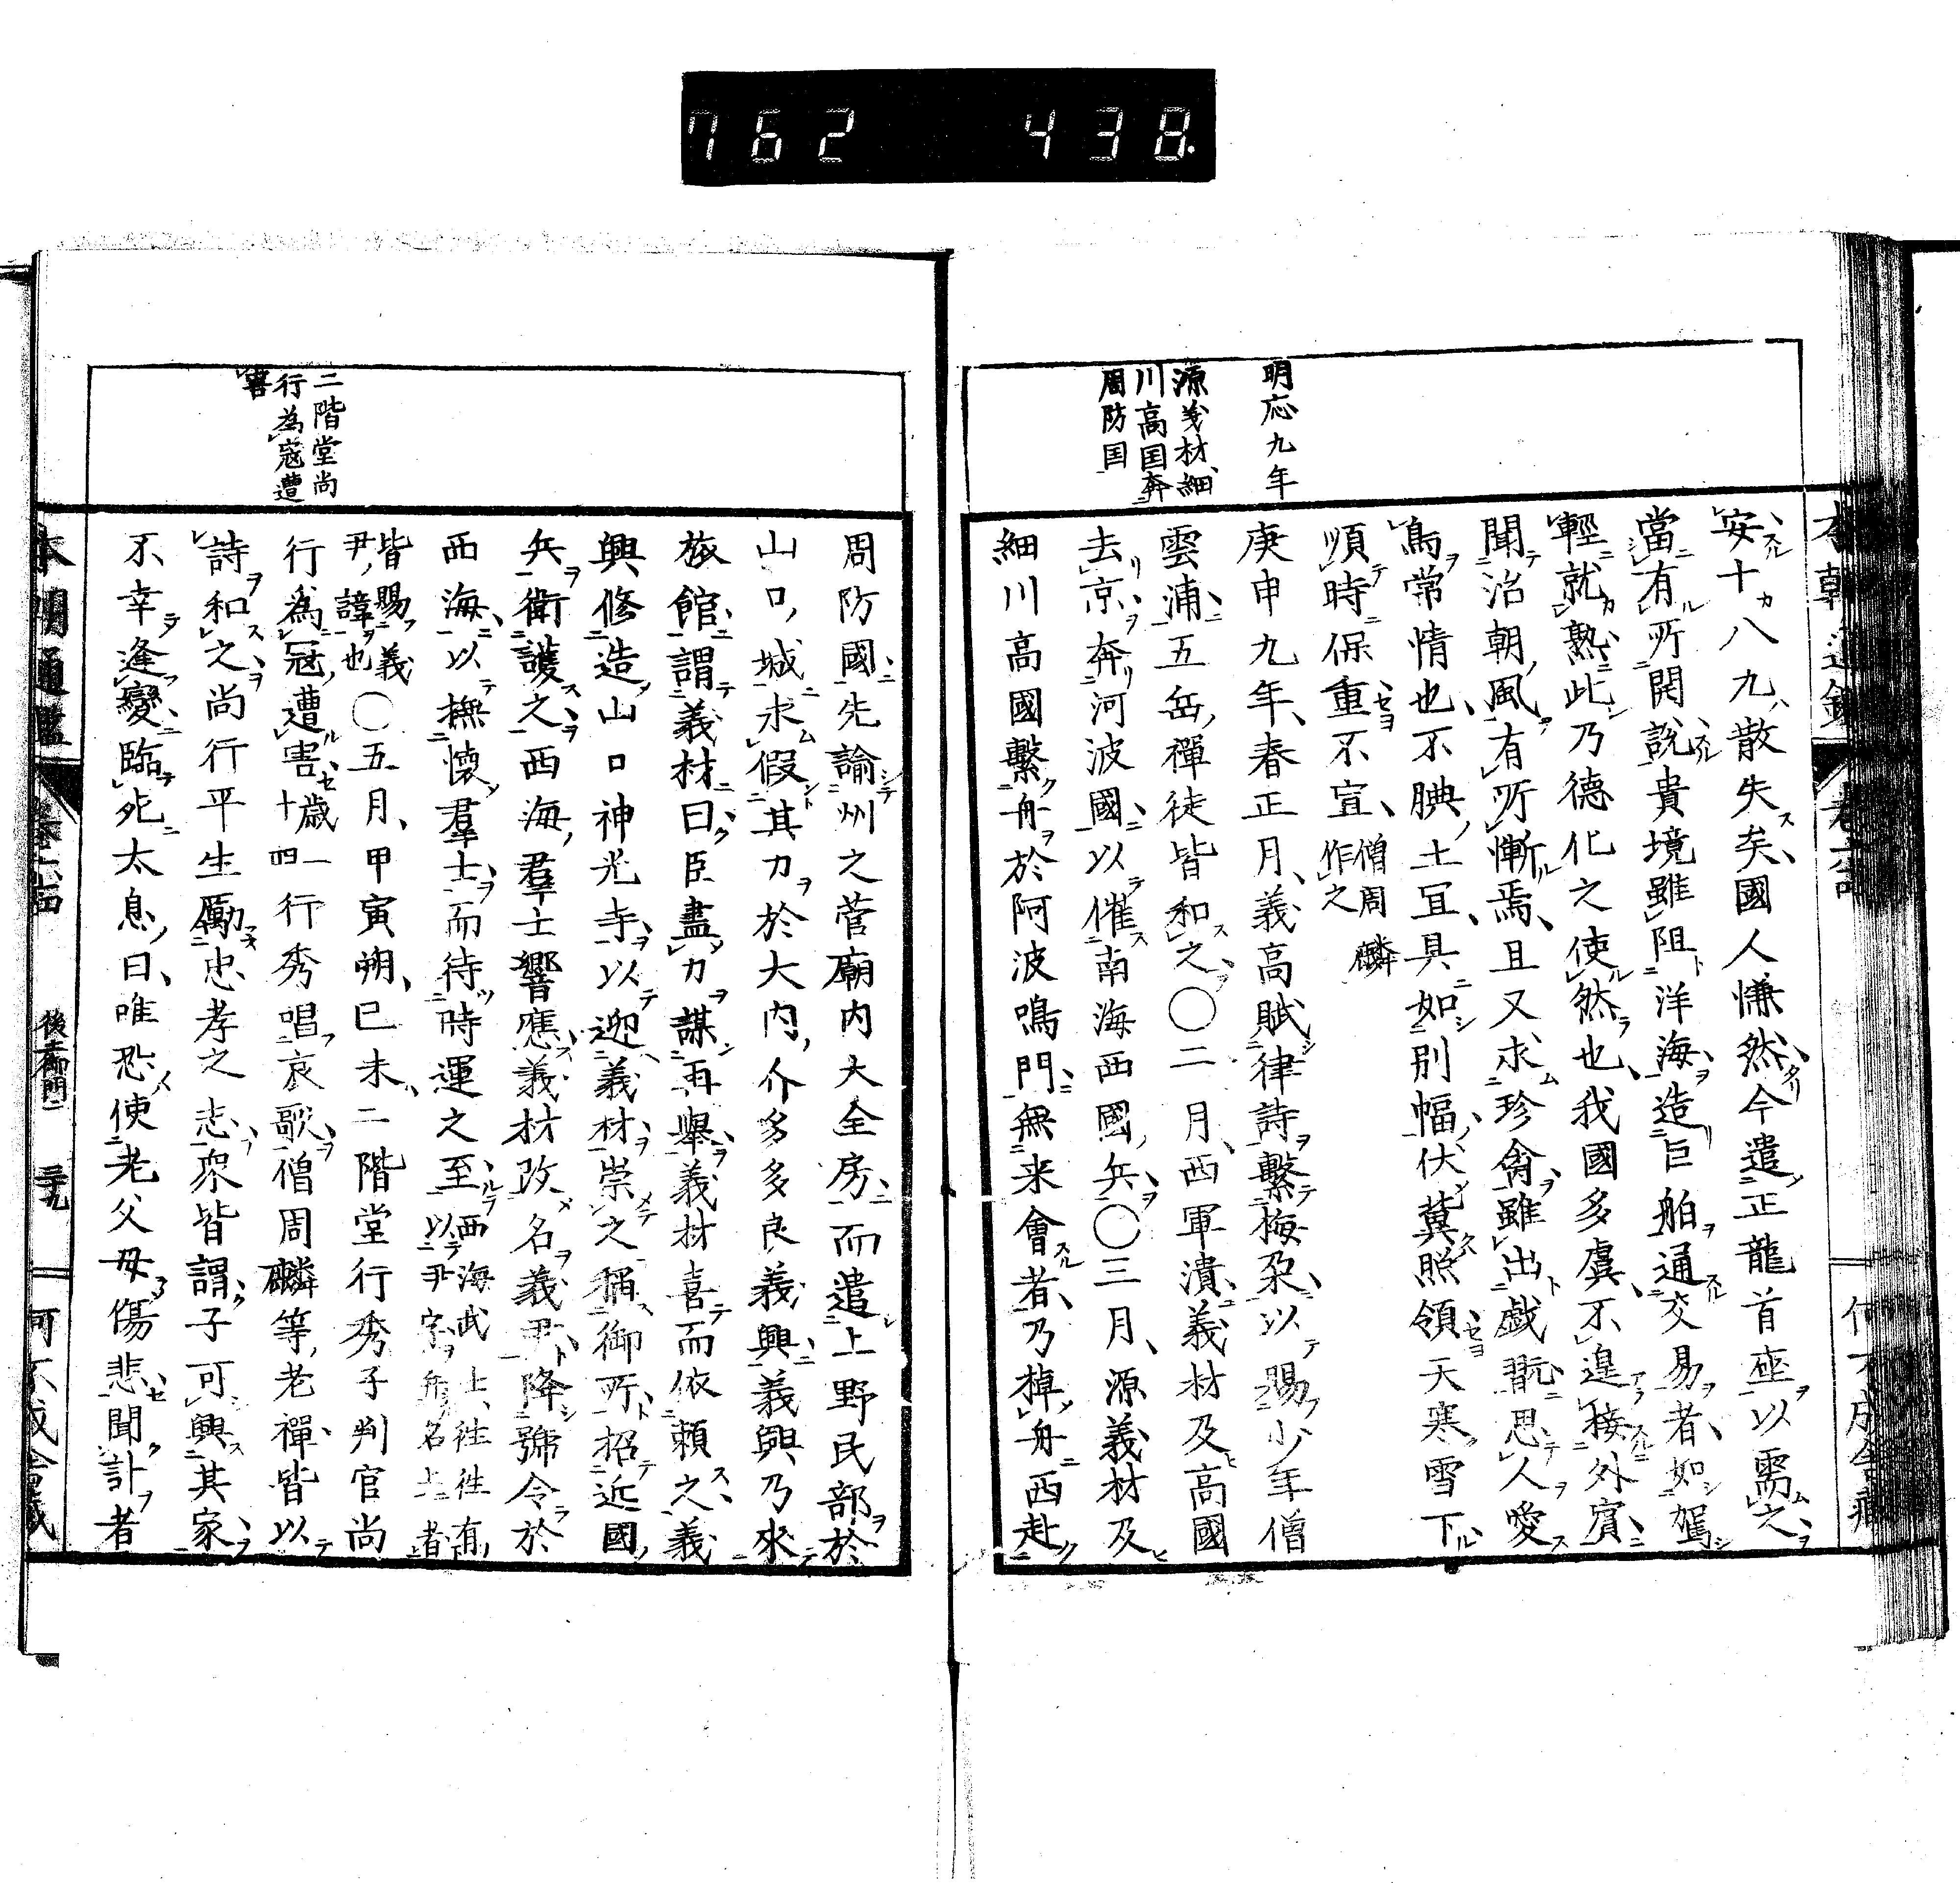 762 438.
明応九年
源義材細
川高国奔
周防国
安十八九散失矣國人慊然今遣正龍首座以需之
當有所開説貴境雖阻洋海造巨舶通交易者如駕
輕就熟此乃德化之使然也我國多虞不遑接外賓
聞治朝風有所慚焉且又求珍禽雖出戯翫思人愛
鳥常情也不腆土冝具如別幅伏冀照領天寒雪下
順時保重不宣僧周麟作之
庚申九年春正月義高賦律詩繫梅朶以賜少年僧
雲浦五岳禪徒皆和之〇二月西軍潰義材及高國
去京奔河波國以催南海西國兵〇三月源義材及
細川高國繫舟於阿波鳴門無来會者乃棹舟西赴
二階堂尚
行為寇遭
害
周防國先諭州之菅廟内大全房而遣上野民部於
山口城求假其力於大内介多多良義興義興乃來
旅館謂義材曰臣盡力謀再舉義材喜而依頼之義
興修造山口神光寺以迎義材崇之稱御所招近國
兵衛護之西海羣士響應義材改名義尹降號令於
西海以撫懐羣士而待時運之至西海武士往往有以尹字弁名上者
皆賜義尹諱也〇五月甲寅朔己未二階堂行秀子判官尚
行為冦遭害歳一十四行秀唱哀歌僧周麟等老禪皆以
詩和之尚行平生勵忠孝之志衆皆謂子可興其家
不幸逢變臨死太息曰唯恐使老父母傷悲聞訃者
本朝通鑑
後土御門二
三十九